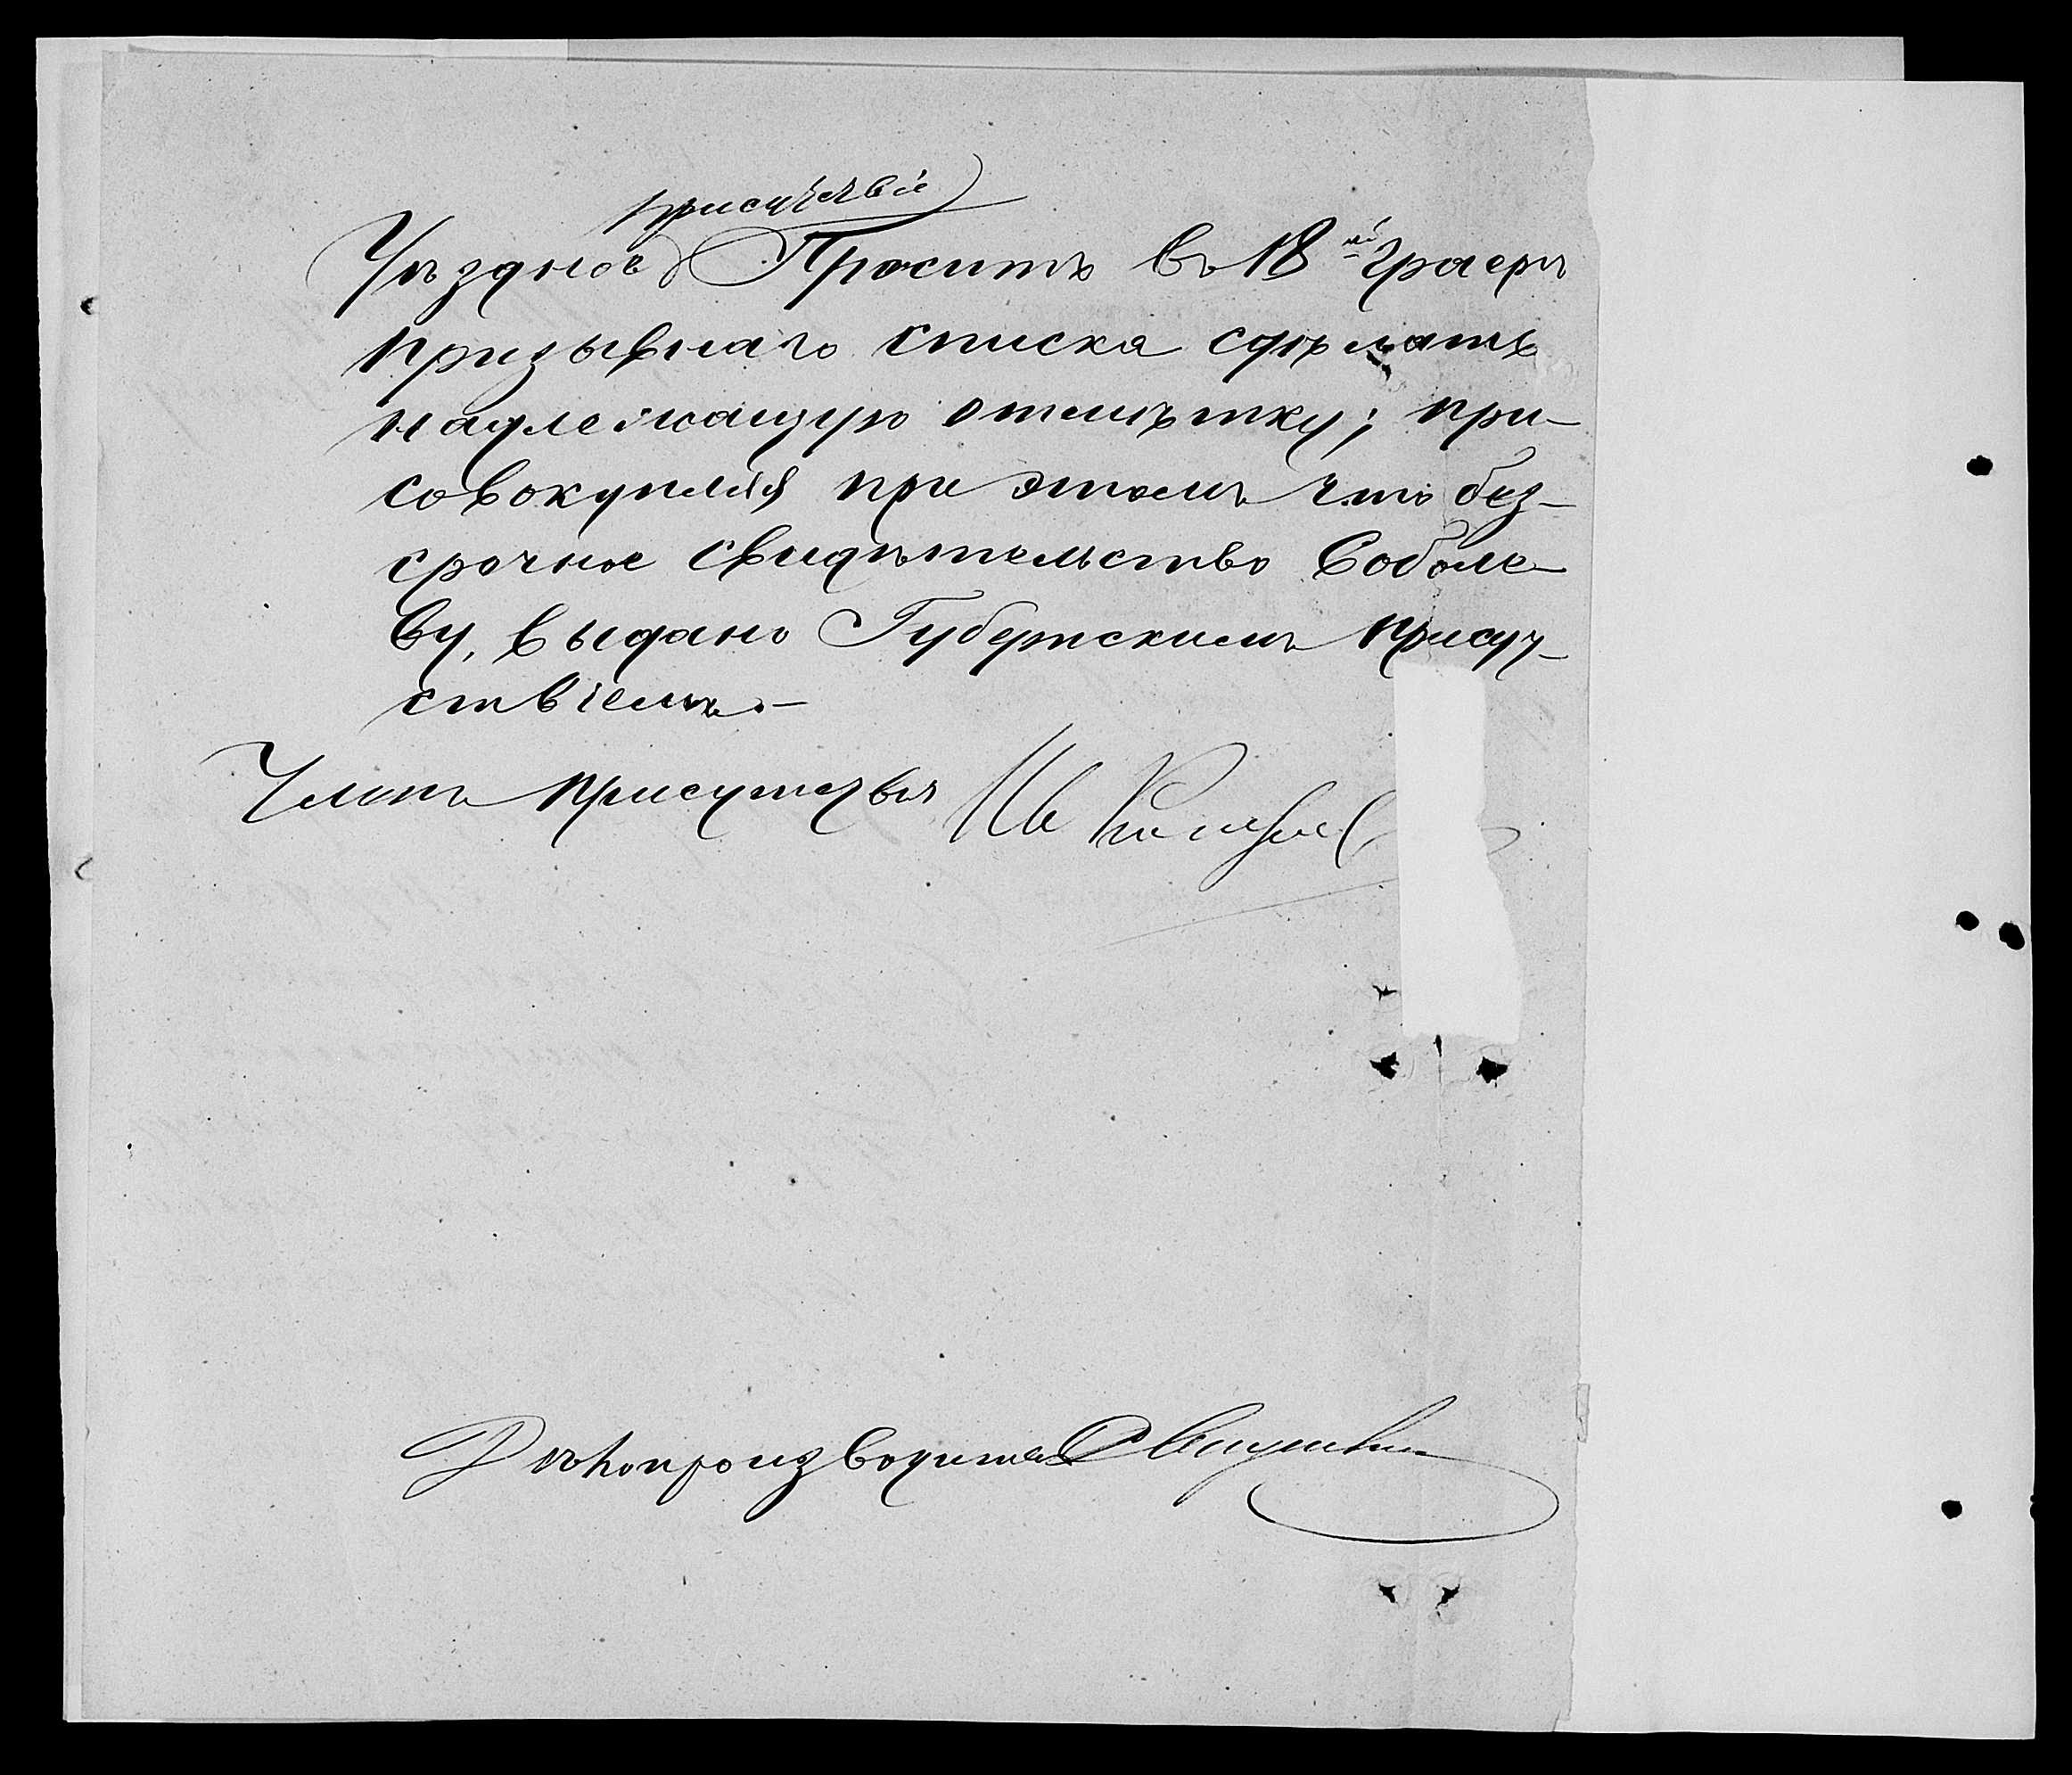 присутствіе
Уѣздное Проситъ въ 18й графѣ
призывнаго списка сдѣлать
надлежащую отмѣтку; при-
совокупляя при этомъ что без-
срочное свидѣтельство Соболе-
ву, выдано Губернскимъ присут-
ствіемъ.-
Членъ присутствія Ив
Дѣлопроизводитель